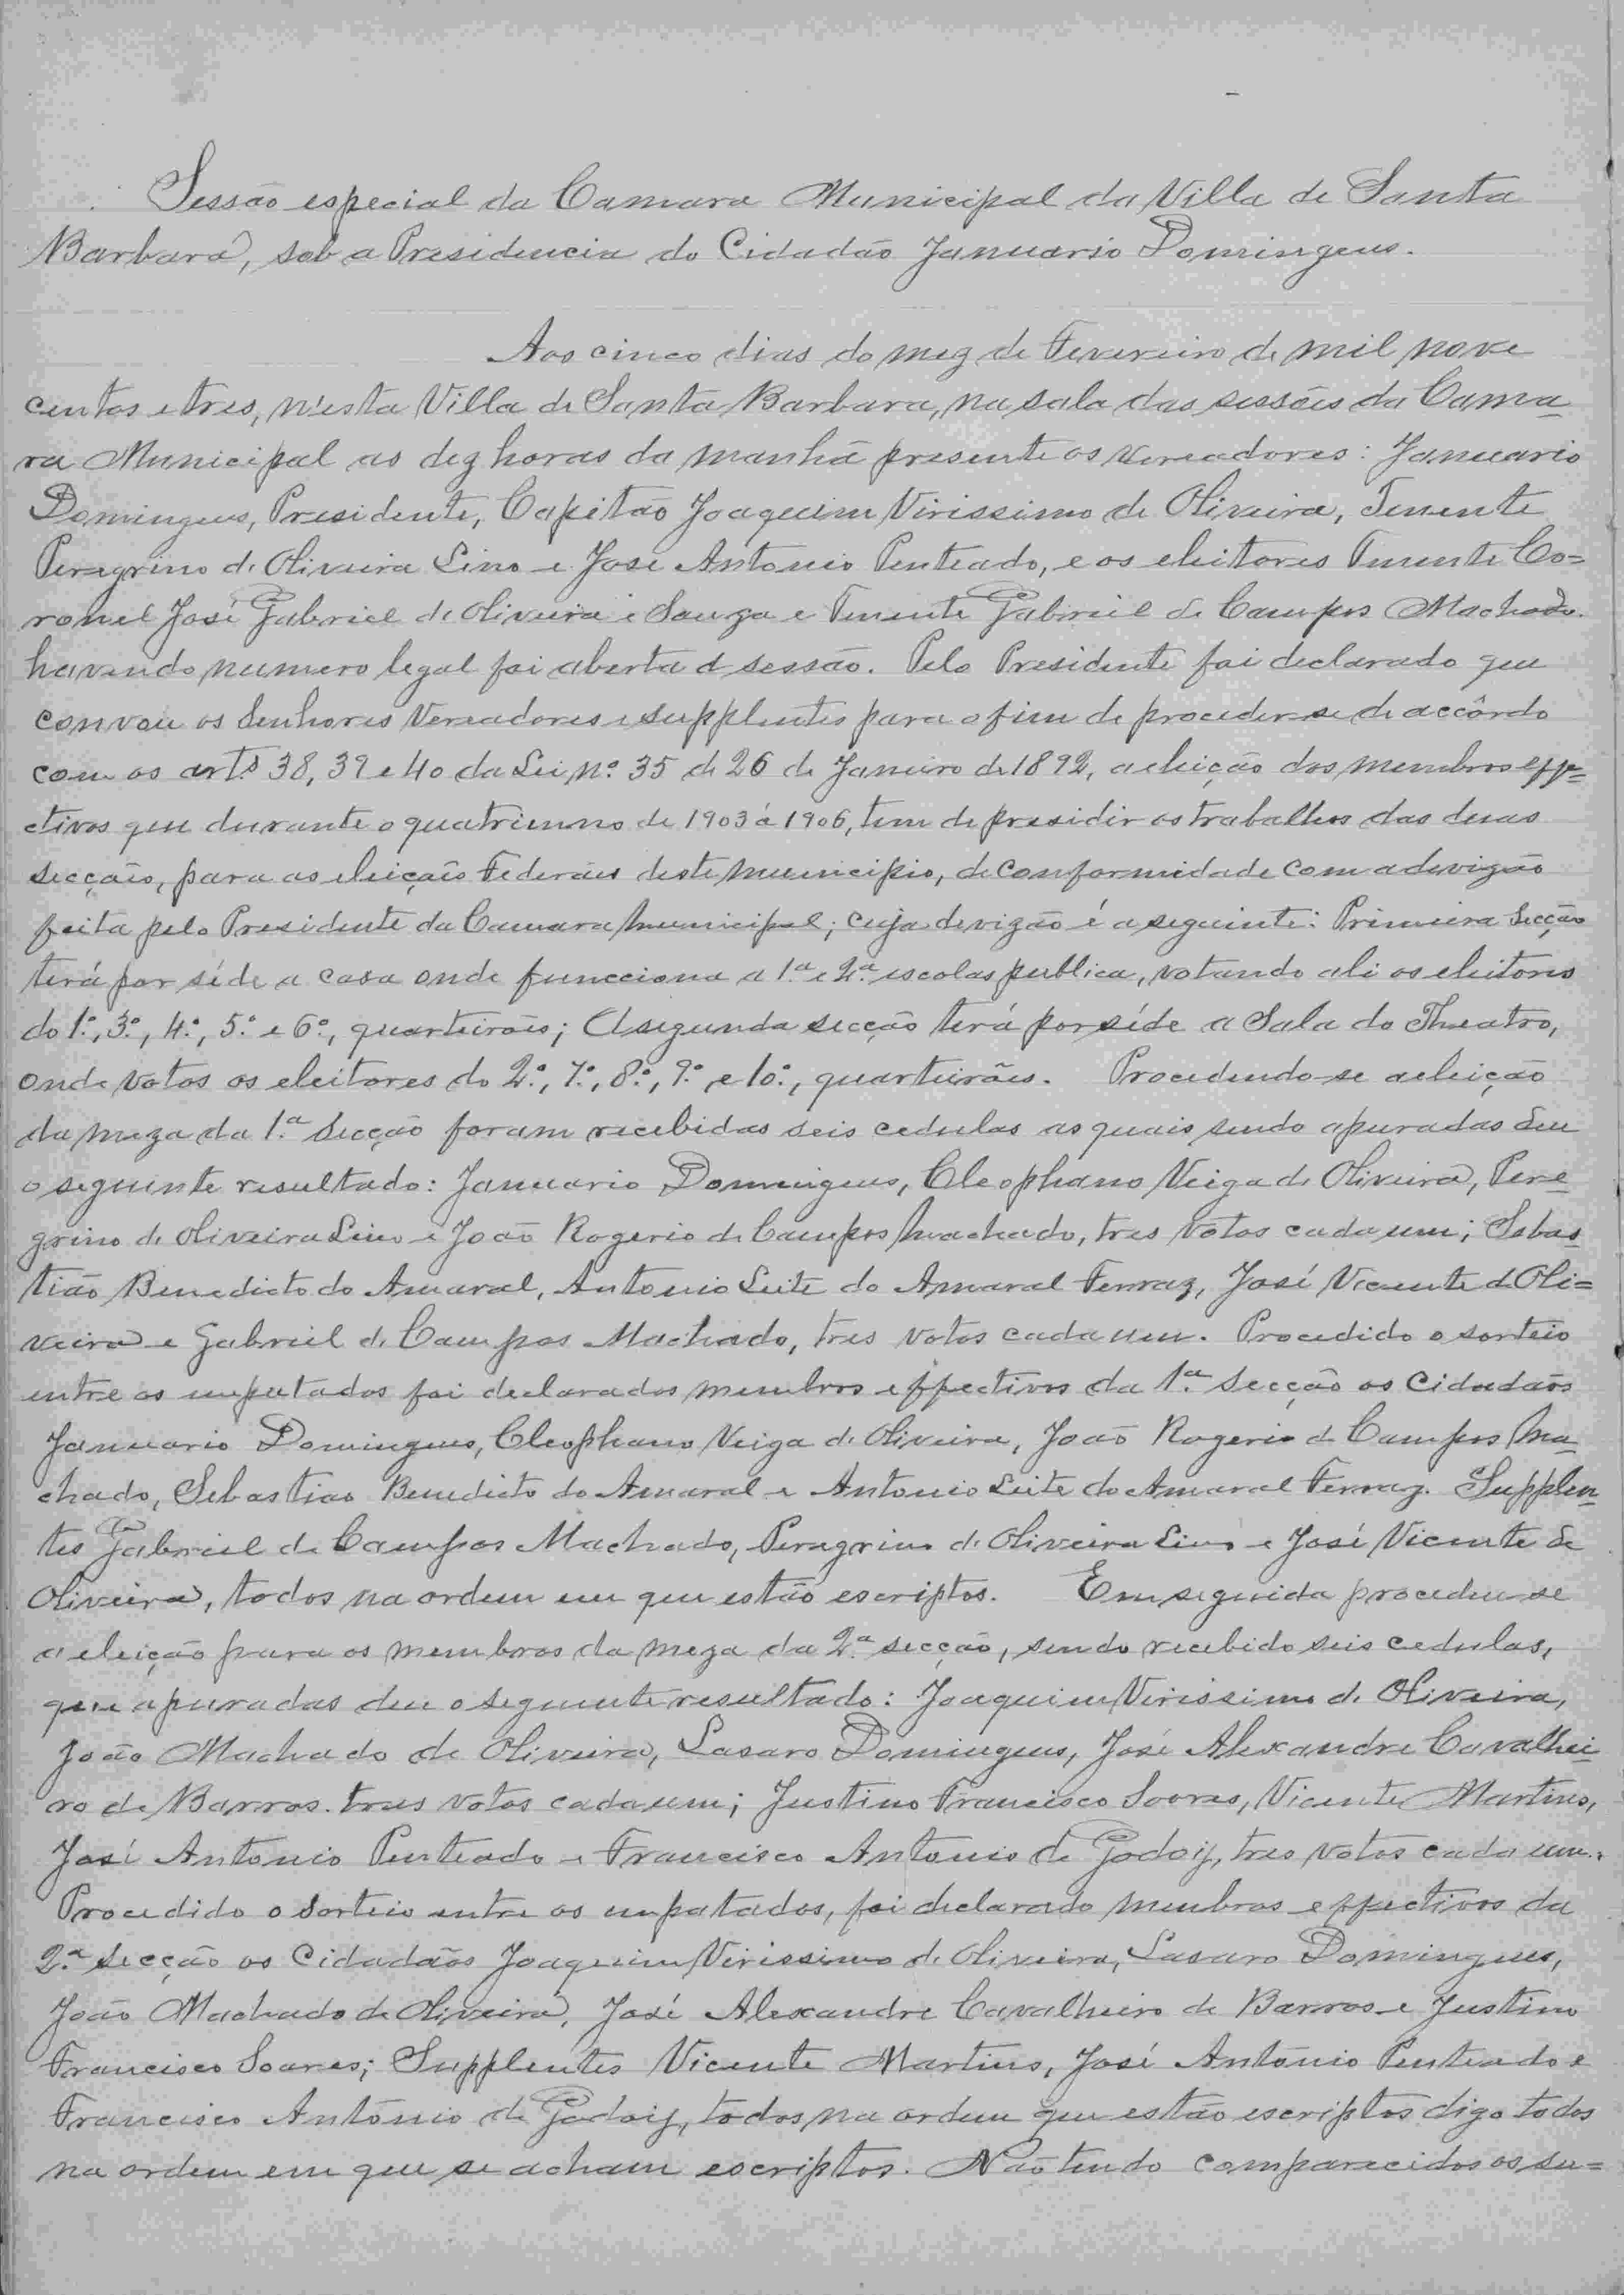 Sessão especial da Camara Municipal da Villa de Santa
Barbara, sob a Presidencia do Cidadão Januario Domingues.
Aos cinco dias do mez de Fevereiro de mil nove
centos e tres, n'esta Villa de Santa Barbara, na sala das sessões da Cama-
ra Municipal as dez horas da manhã presente os vereadores: Januario
Domingues, Presidente, Capitão Joaquim Virissimo de Oliveira, Tenente
Peregrino de Oliveira Lino e José Antonio Penteado, e os eleitores Tenente Co=
ronel José Gabriel de Oliveira e Souza e Tenente Gabriel de Campos Machado.
havendo numero legal foi aberta a sessão. Pelo Presidente foi declarado que
convou os Senhores Vereadores e supplentes para o fim de proceder-se de accôrdo
com os art.s 38, 39 e 40 da Lei n.º 35 de 26 de Janeiro de 1892, a eleição dos membros effe=
ctivos que durante o quatriennno de 1903 á 1906, tem de presidir os trabalhos das duas
secçãos, para as eleiçaõs Federáes deste municipio, de conformidade com a devizão
feita pelo Presidente da Camara Municipal; cuja devizão é a seguinte: Primeira Secção
terá por séde a casa onde funcciona a 1.ª e 2.ª escolas publica, votando ali os eleitores
do 1.º, 3.º, 4.º, 5.º e 6.º, quarteirões; A segunda secção terá por séde a Sala do Theatro,
onde votas os eleitores do 2.º, 7.º, 8.º, 9.º e 10.º, quarteirões. Procedendo-se a eleição
da meza da 1.ª Secção foram recebidas seis cedulas as quais sendo apuradas deu
o seguinte resultado: Januario Domingues, Cleophano Veiga de Oliveira, Pere-
grino de Oliveira Lino e João Rogerio de Campos Machado, tres votos cada um; Sebas-
tião Benedicto do Amaral, Antonio Leite do Amaral Ferraz, José Vicente de Oli=
veira e Gabriel de Campos Machado, tres votos cada um. Procedido o sorteio
entre os empatados foi declarados membros effectivos da 1.ª Secção os Cidadãos
Januario Domingues, Cleophano Veiga de Oliveira, João Rogerio de Campos Ma-
chado, Sebastiao Benedicto do Amaral e Antonio Leite do Amaral Ferraz. Supplen-
tes Gabriel de Campos Machado, Peregrino de Oliveira Lino e José Vicente de
Oliveira, todos na ordem em que estão escriptos. Em seguida procedeu-se
a eleição para os membros da meza da 2.ª secção, sendo recebido seis cedulas,
que apuradas deu o seguinte resultado: Joaquim Virissimo de Oliveira,
João Machado de Oliveira, Lasaro Domingues, José Alexandre Cavalhei-
ro de Barros. tres votos cada um; Justino Francisco Soares, Vicente Martins,
José Antonio Penteado e Francisco Antonio de Godoij, tres votos cada um.
Procedido o sorteio entre os empatados, foi declarado membros effectivos da
2.ª Secção os Cidadãos Joaquim Virissimo de Oliveira, Lasaro Domingues,
João Machado de Oliveira, José Alexandre Cavalheiro de Barros e Justino
Francisco Soares; Supplentes Vicente Martins, José António Penteado e
Francisco António de Godoij, todos na ordem que estão escriptos digo todos
na ordem em que se acham escriptos. Não tendo comparecidos os su=